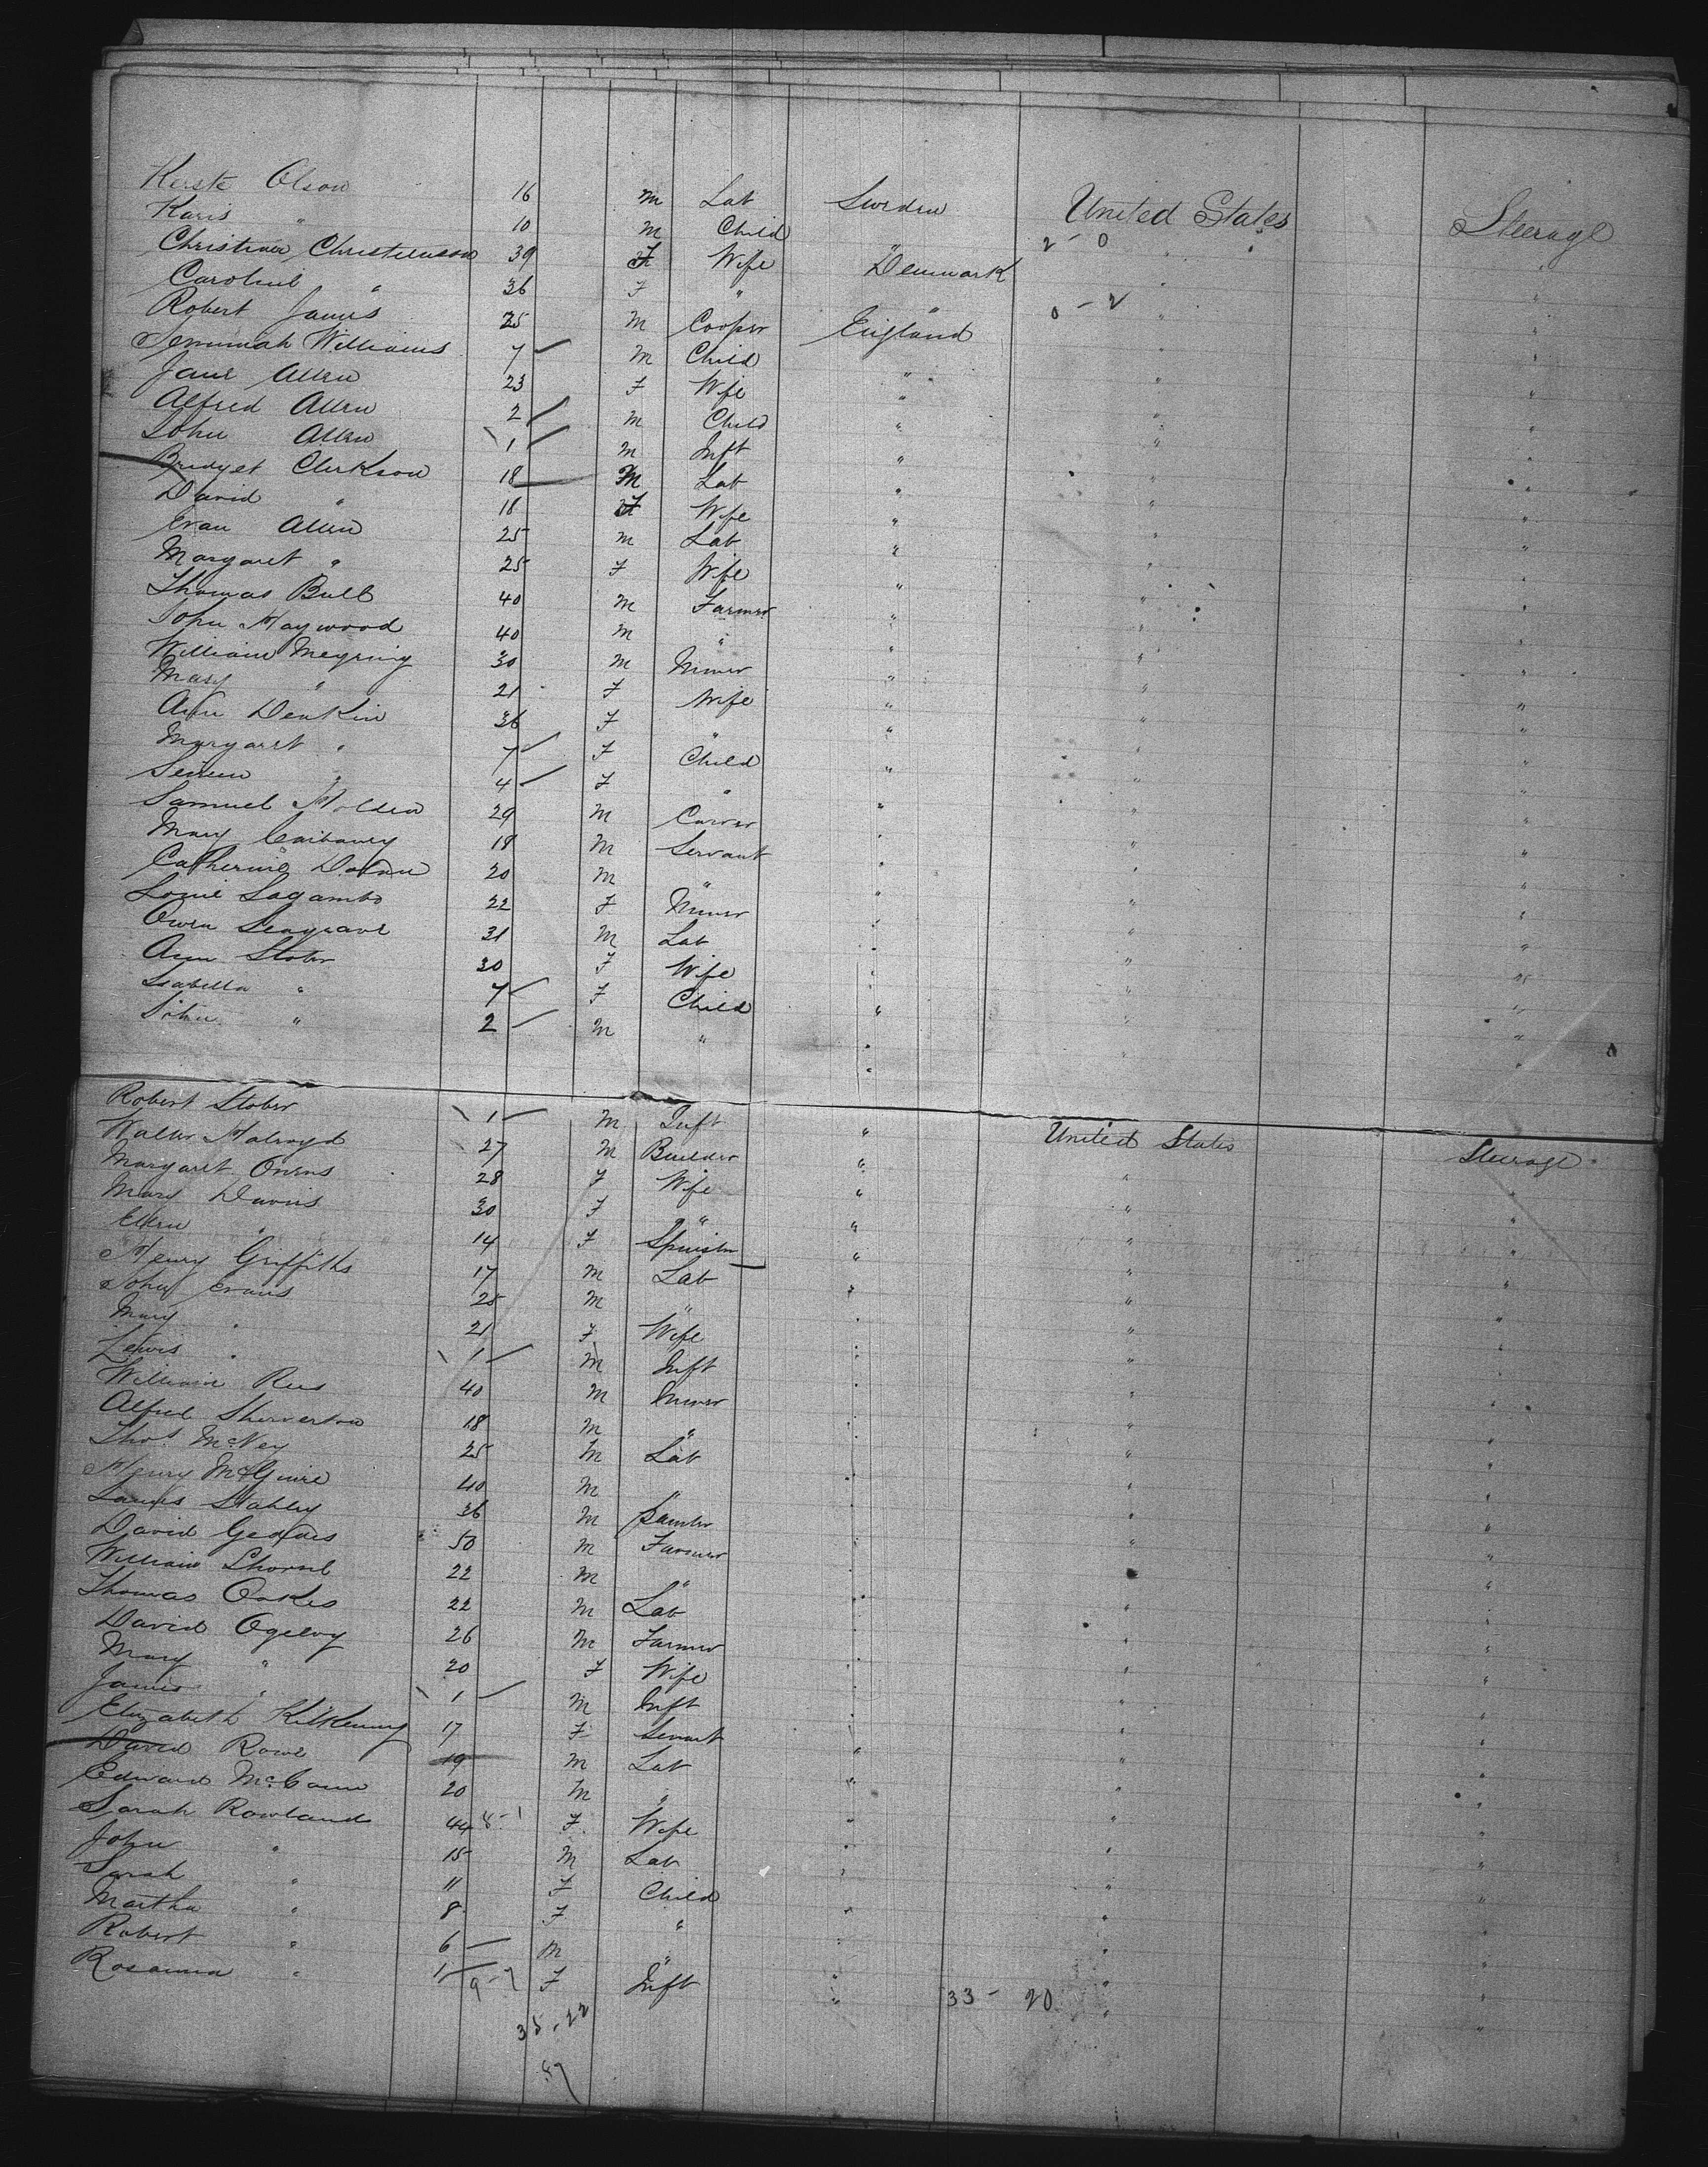 Kerste Olson 16 M Lab Sweden United States Steerage
Karis " 10 M Child " 2-0 " "
Christina Christenson 39 F Wife Denmark " "
Caroline " 36 F " " 0-2 " "
Robert James 25 M Cooper England " "
Jemimah Williams 7 M Child " " "
Jane Allen 23 F Wife " " "
Alfred Allen 2 M Child " " "
John Allen 1 M Inft " " "
Bridget Clerkson 18 M Lab " " "
David " 18 F Wife " " "
Evan Allen 25 M Lab " " "
Margaret " 25 F Wife " " "
Thomas Bull 40 M Farmer " " "
John Haywood 40 M " " " "
William 30 M Miner " " "
Mary " 21 F Wife " " "
Ann Deakin 36 F " " " "
Margaret " 7 F Child " " "
" 4 F " " " "
Samuel Holden 29 M Carver " " "
Mary 18 M Servant " " "
Catherine 20 M " " " "
Louie 22 F Miner " " "
Owen Seagrave 31 M Lab " " "
Ann Stober 30 F Wife " " "
Isabella " 7 F Child " " "
John " 2 M " " " "
Robert Stober 1 M Inft " United States Steerage
Walter Holroyd 27 M Builder " " "
Margaret Owens 28 F Wife " " "
Mary Davis 30 F " " " "
Ellen " 14 F Spinster " " "
Henry Griffiths 17 M Lab " " "
John Evans 25 M " " " "
Mary " 21 F Wife " " "
Lewis " 1 M Inft " " "
William Rees 40 M Miner " " "
Alfred Sherverton 18 M " " " "
Thos. McVey 25 M Lab " " "
Henry McGuire 40 M " " " "
James Stahley 36 M Painter " " "
David Geddes 50 M Farmer " " "
William 22 M " " " "
Thomas Oakes 22 M Lab " " "
David Ogelvy 26 M Farmer " " "
Mary " 20 F Wife " " "
James " 1 M Inft " " "
Elizabeth Kilkenny 17 F Servant " " "
David Rowe 19 M Lab " " "
Edward McCann 20 M " " " "
Sarah Rowland 44 8-1 F Wife " " "
John " 15 M Lab " " "
Sarah " 11 F Child " " "
Martha " 8 F " " " "
Robert " 6 M " " " "
Rosanna " 1 9-7 F Inft " 33-20 " "
35-22
57